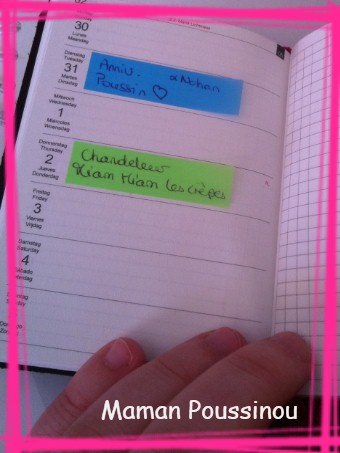 30
Lunes
Maandag
Dienstag
Tuesday
31
Martes
Dinsdag
Anniv. Nohan
Poussin ♡
Mittwoch
Wednesday
1
Miércoles
Woensdag
Donnerstag
Thursday
2
Jueves
Donderdag
Chandeleur
Miam Miam les crêpes
Freitag
Friday
3
Viernes
Vrijdag
Samstag
Saturday
4
Sábado
Maman Poussinou